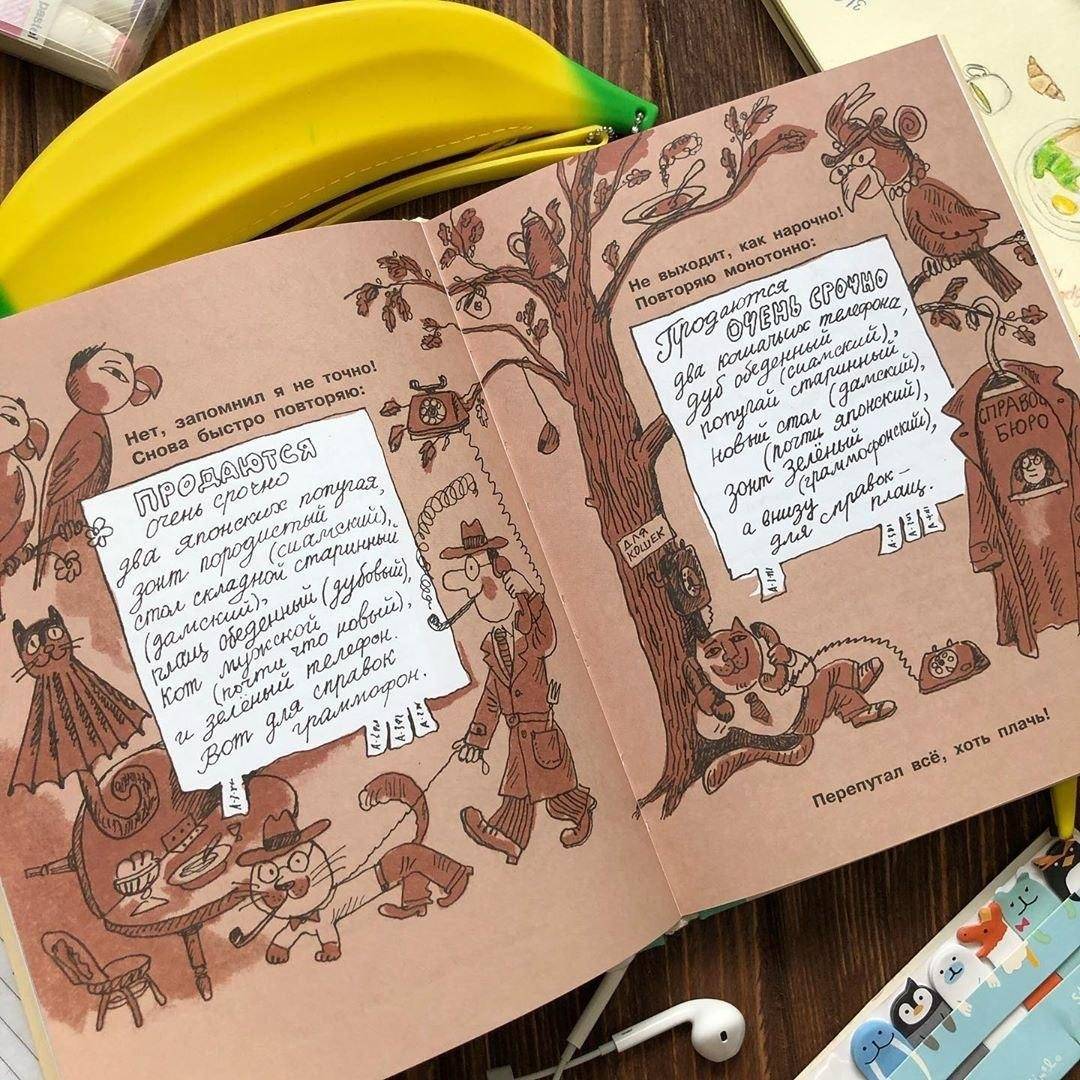 pastel
Нет, запомнил я не точно!
Снова быстро повторяю:
ПРОДАЮТСЯ
очень срочно
два японских попугая,
зонт породистый
(сиамский),
стол складной старинный
(дамский),
плащ обеденный (дубовый),
кот мужской
(почти что новый),
и зелёный телефон.
Вот для справок
граммофон.
Не выходит, как нарочно!
Повторяю монотонно:
Продаются
ОЧЕНЬ СРОЧНО
два кошачьих телефона,
дуб обеденный
(сиамский),
попугай старинный
(дамский),
новый стол
(почти японский),
зонт зелёный
(граммофонский),
а внизу —
для справок
плащ.
ДЛЯ
КОШЕК
СПРАВОЧ
БЮРО
Перепутал всё, хоть плачь!